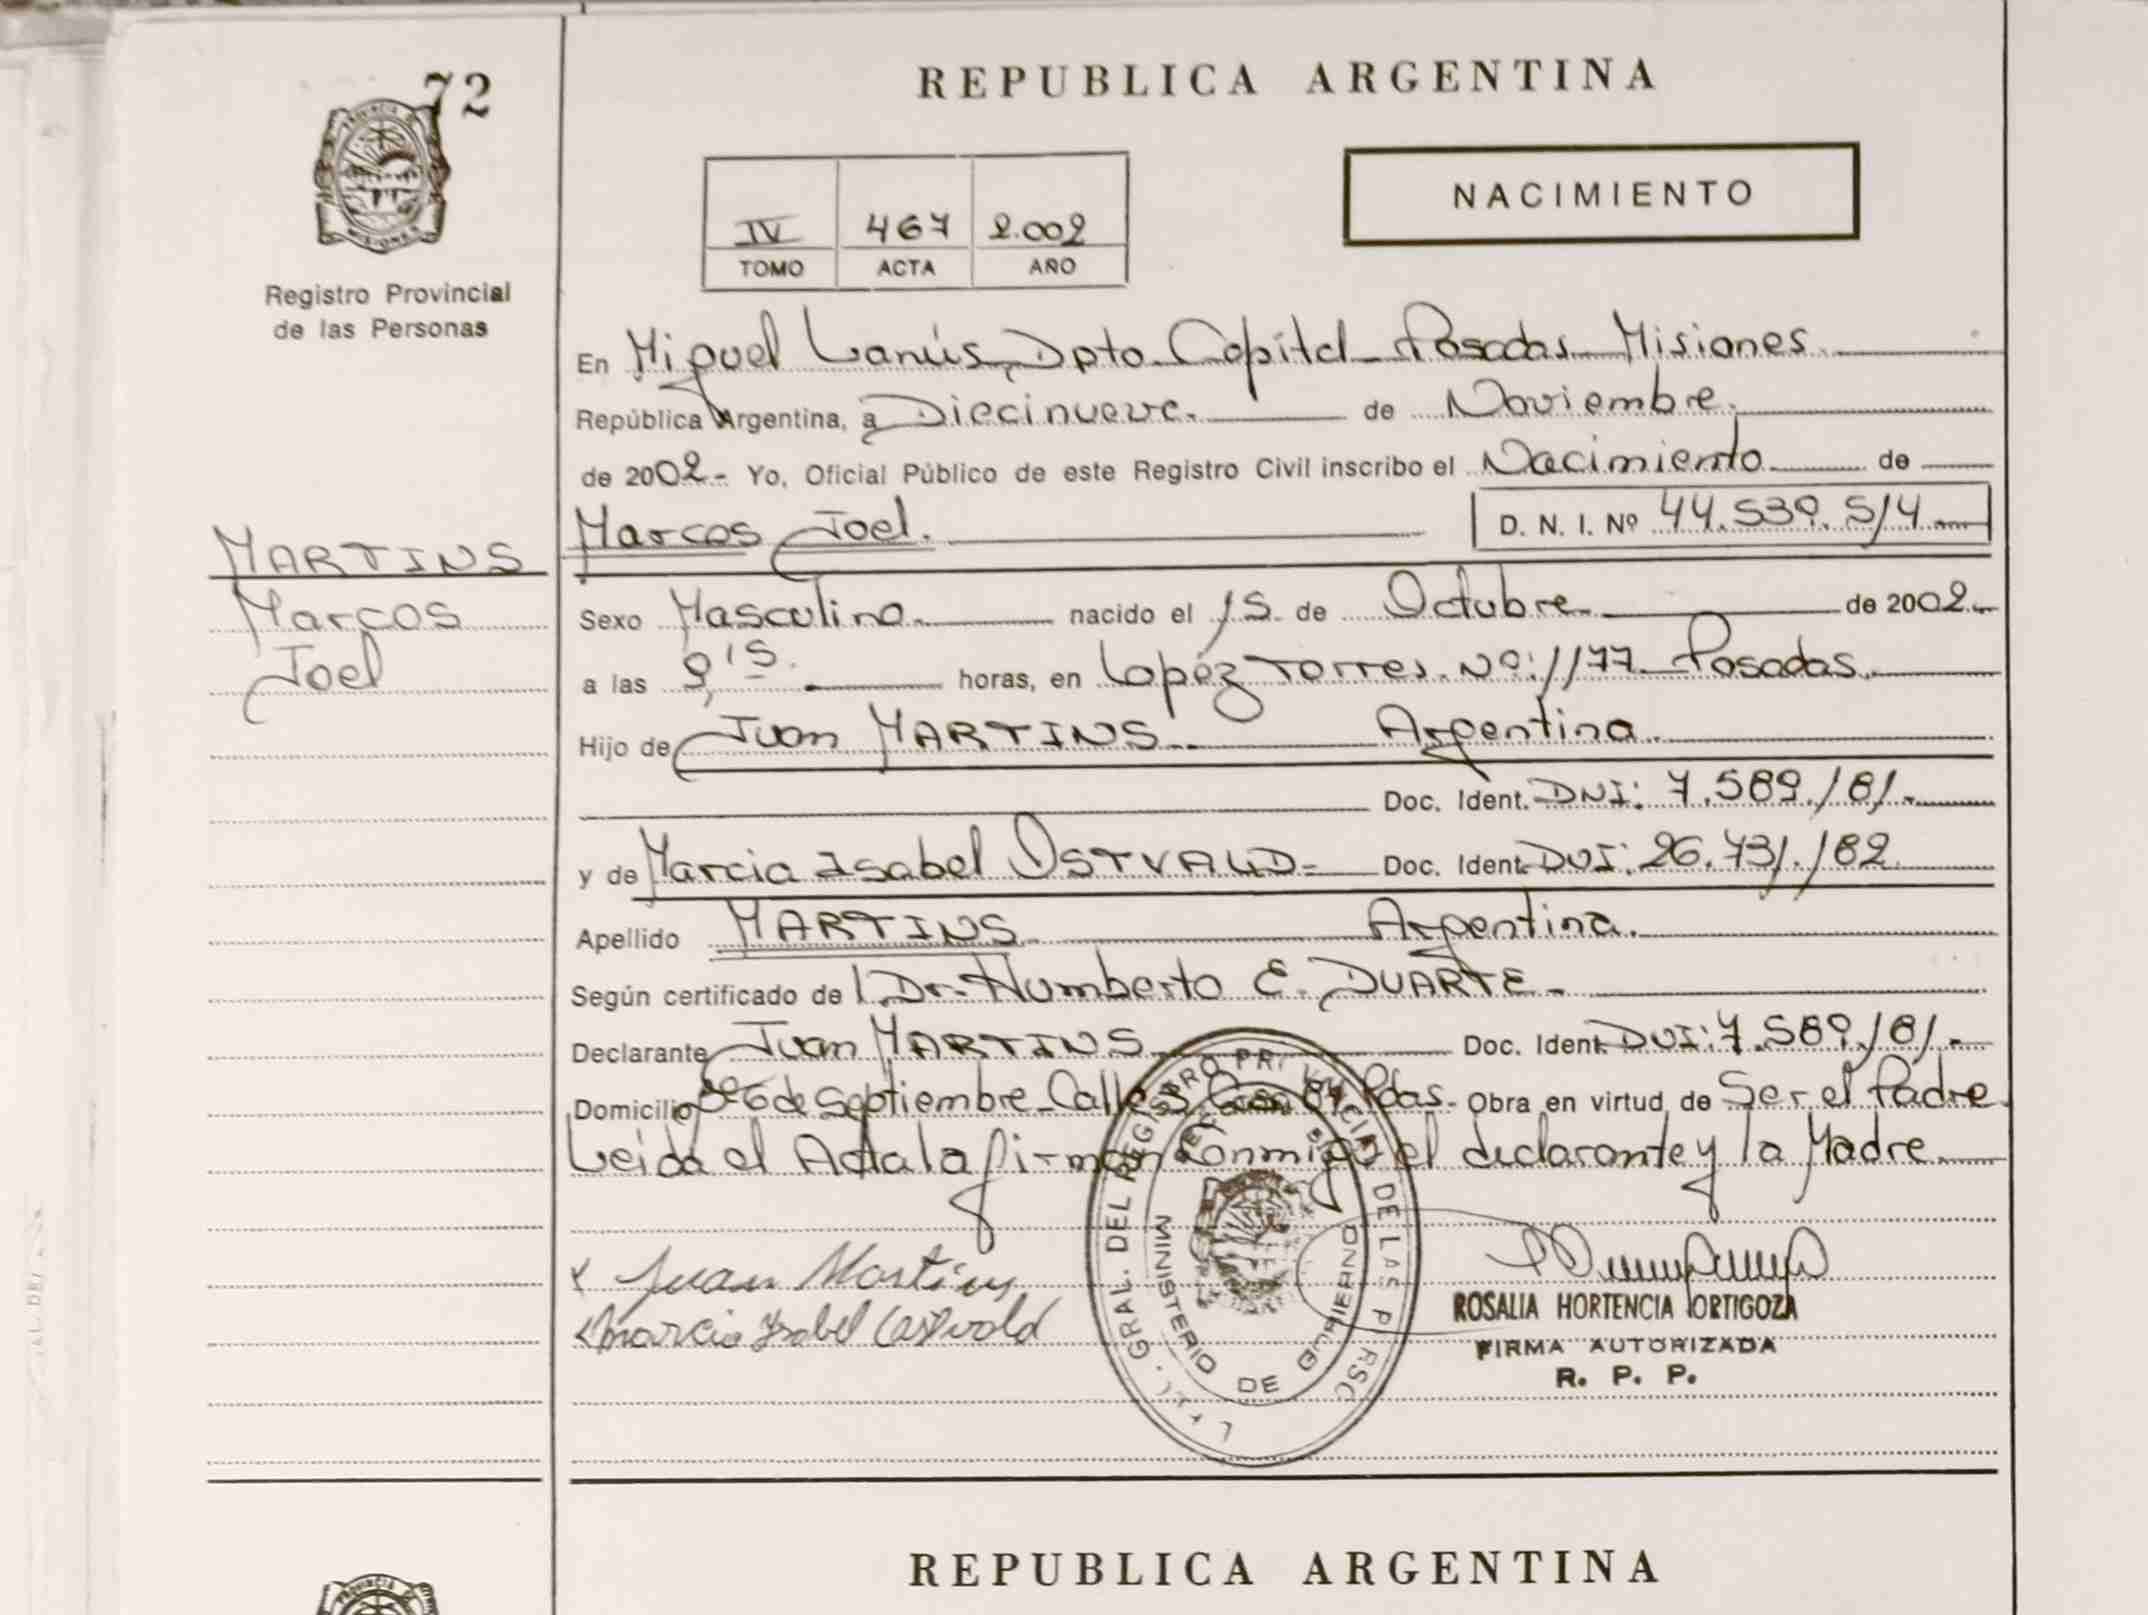 72
REPUBLICA ARGENTINA
NACIMIENTO
IV 467 2.002
TOMO ACTA AÑO
PROVINCIA DE MISIONES
Registro Provincial
de las Personas
En Miguel Lanús, Dpto. Capital - Posadas Misiones
República Argentina, a Diecinueve. de Noviembre.
de 2002.- Yo, Oficial Público de este Registro Civil inscribo el Nacimiento de
Marcos Joel. D. N. I. Nº 44.539.514
MARTINS
Marcos
Joel
Sexo Masculino. nacido el 15. de Octubre. de 2002.
a las 9,15. horas, en Lopéz Torres. Nº: 1177 Posadas.
Hijo de Juan MARTINS. Argentina.
Doc. Ident. DNI: 7.589.181.
y de Marcia Isabel OSTVALD= Doc. Ident. DNI: 26.731.182
Apellido MARTINS Argentina.
Según certificado de 1.Dr. Humberto E. DUARTE.
Declarante Juan MARTINS Doc. Ident. DNI: 7.589.181.
Domicilio Bº 6 de Septiembre - Calle 3 Casa Pdas. Obra en virtud de Ser el Padre
Leida el Acta la firman conmigo el declarante y la Madre
GRAL. DEL REGISTRO PROVINCIAL DE LAS PERSO
MINISTERIO DE GOBIERNO
Juan Martins
Marcia Isabel Ostvald
ROSALIA HORTENCIA ORTIGOZA
FIRMA AUTORIZADA
R. P. P.
REPUBLICA ARGENTINA